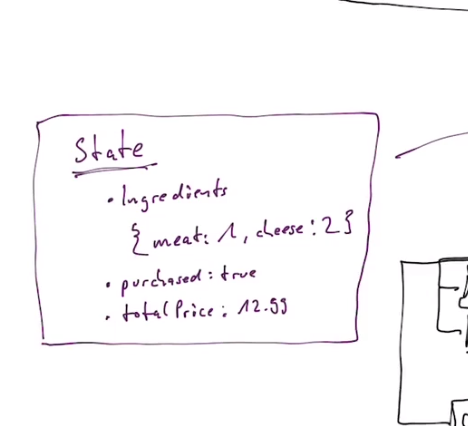 State
• Ingredients
{meat: 1, cheese: 2}
• purchased: true
• totalPrice: 12.99